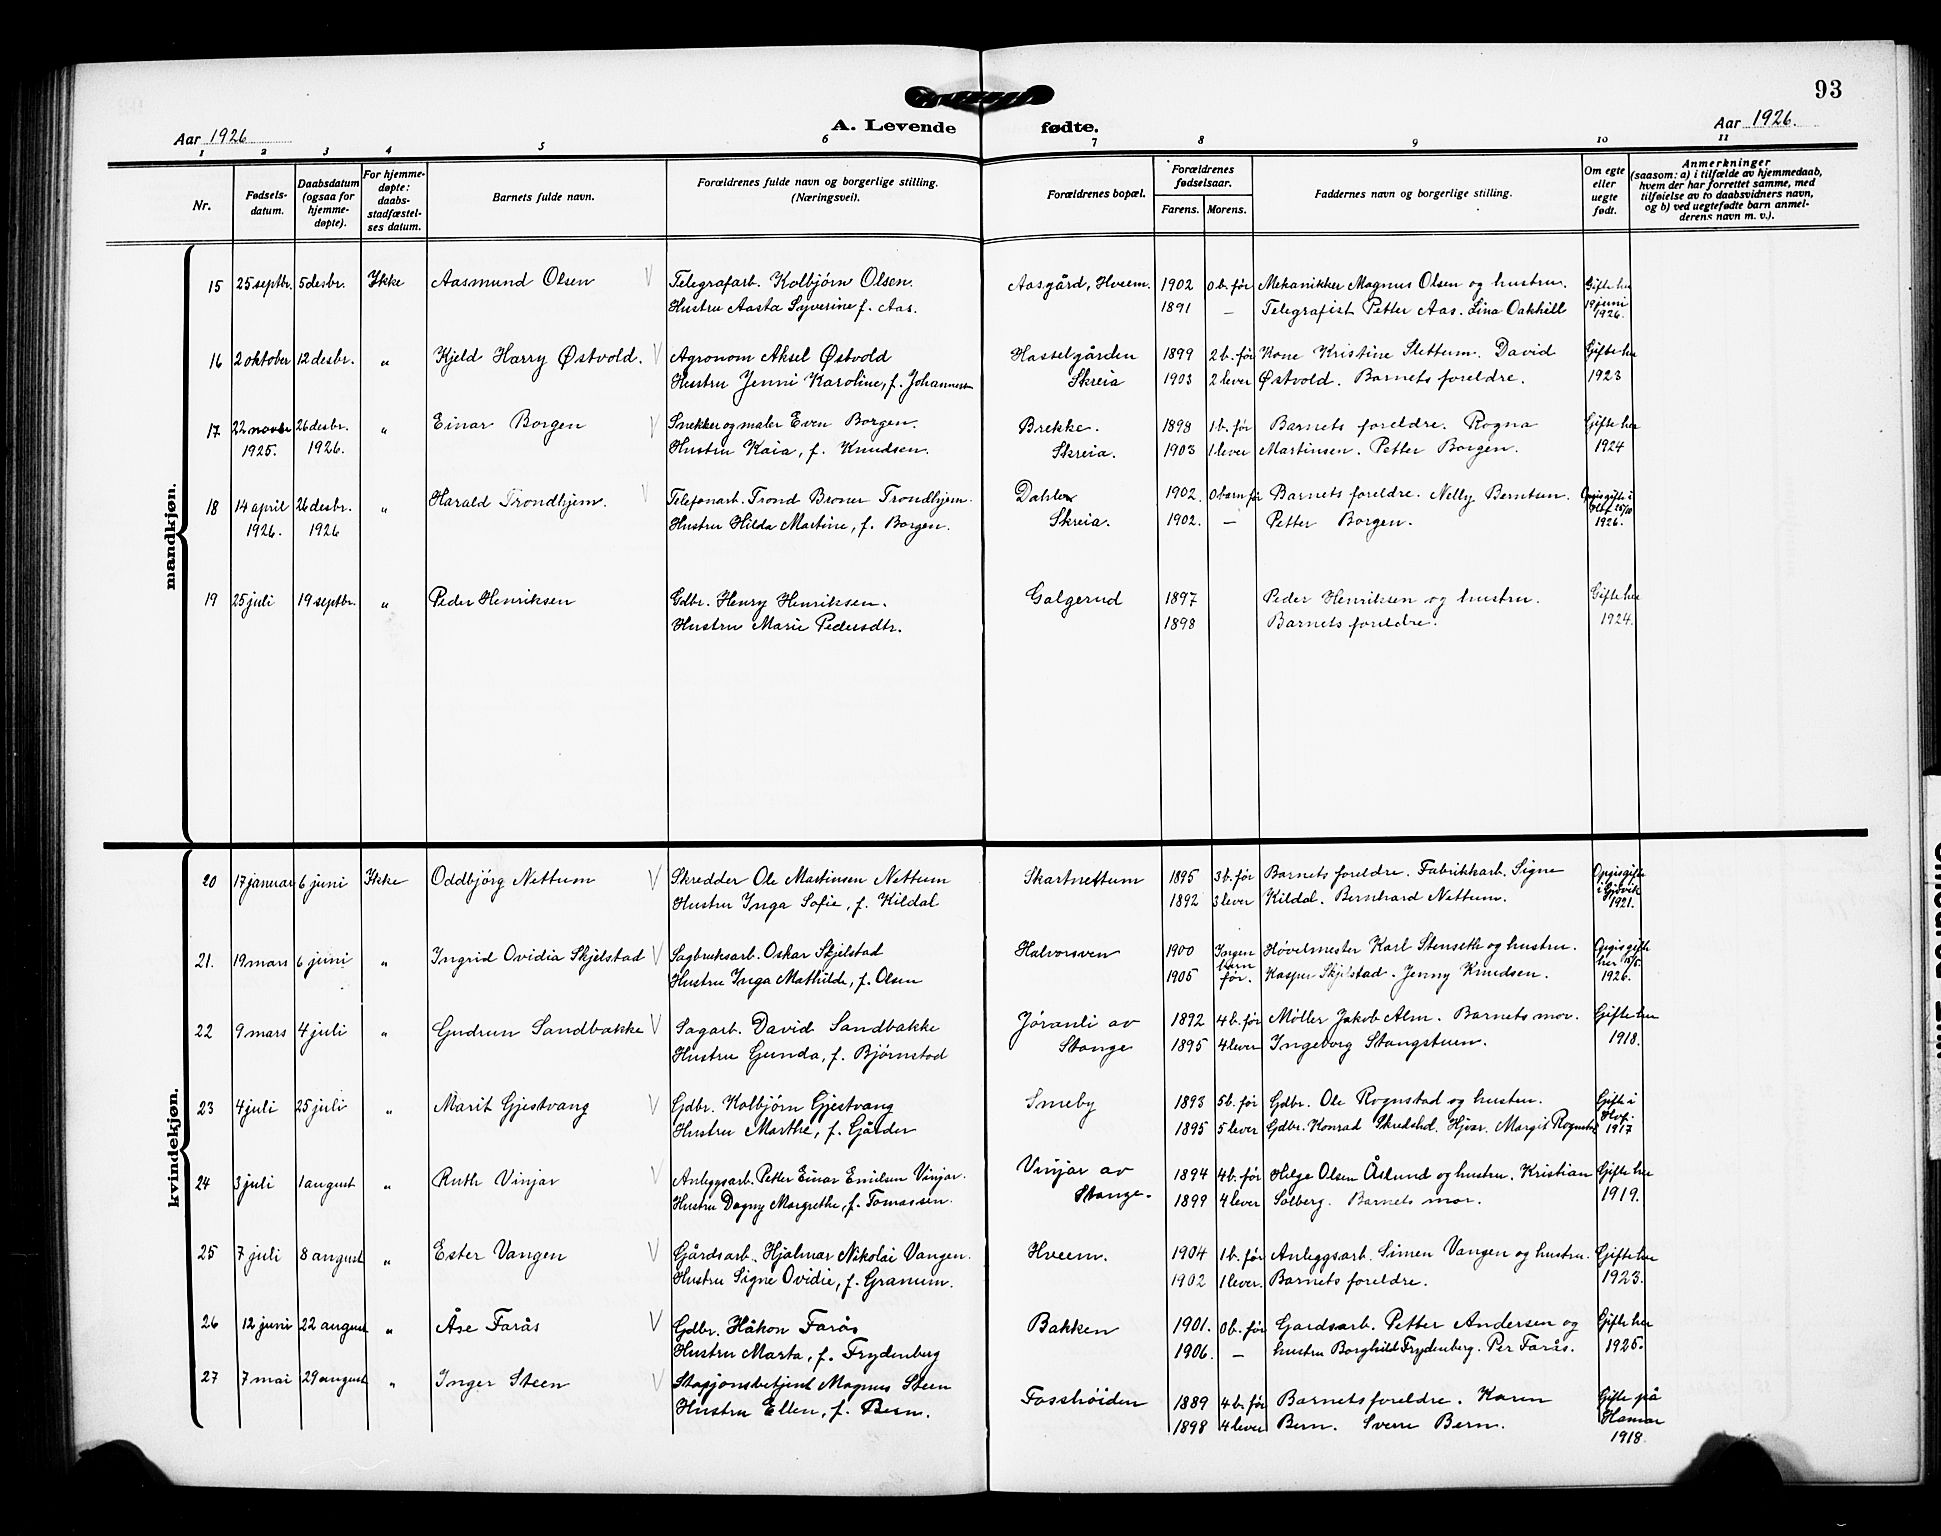 93
A. Levende fødte.
Aar 1926
Aar 1926.
1 2 3 4 5 6 7 8 9 10 11
Nr.
Fødsels-
datum.
Daabsdatum
(ogsaa for
hjemme-
døpte).
For hjemme-
døpte:
daabs-
stadfæstel-
ses datum.
Barnets fulde navn.
Forældrenes fulde navn og borgerlige stilling.
(Næringsvei).
Forældrenes bopæl.
Forældrenes
fødselsaar.
Farens. Morens.
Faddernes navn og borgerlige stilling.
Om egte
eller
uegte
født.
Anmerkninger
(saasom: a) i tilfælde av hjemmedaab,
hvem der har forrettet samme, med
tilføielse av to daabsvidners navn,
og b) ved uegtefødte barn anmel-
derens navn m. v.).
mandkjøn.
15 25 septbr. 5 desbr. Ikke Aasmund Olsen Telegrafarb. Kolbjørn Olsen. Aasgård, Hveem. 1902 0 b. før Mekanikker Magnus Olsen og hustru. Gifte her
Hustru Aasta Syverine f. Aas. 1891 — Telegrafist Petter Aas. Lina Oakhill 19 juni
1926.
16 2 oktober 12 desbr. " Kjeld Harry Østvold. Agronom Aksel Østvold Hasselgården 1899 2 b. før Kone Kristine Slettum. David Gifte her
Hustru Jenni Karoline, f. Johannessen Skreia 1903 2 lever Østvold. Barnets foreldre. 1923
17 22 novbr 26 desbr. " Einar Borgen Snekker og maler Even Borgen. Brekke. 1898 1 b. før Barnets foreldre. Rogna Gifte her
1925. 1926. Hustru Kaia, f. Knudsen. Skreia. 1903 1 lever Martinsen. Petter Borgen. 1924
18 14 april 26 desbr. " Harald Trondhjem. Telefonarb. Trond Broner Trondhjem. Dahlen 1902. 0 barn før Barnets foreldre. Nelly Berntsen. Opgis gifte i
1926. 1926 Hustru Hilda Martine, f. Borgen. Skreia. 1902. — Petter Borgen. 1926.
19 25 juli 19 septbr. " Peder Henriksen Gdbr. Henry Henriksen. Galgerud 1897 Peder Henriksen og hustru. Gifte her
Hustru Marie Pedersdtr. 1898 Barnets foreldre. 1924.
kvindekjøn.
20 17 januar 6 juni Ikke Oddbjörg Nettum Skredder Ole Martinsen Nettum Skartnettum 1895 3 b. før Barnets foreldre. Fabrikkarb. Signe Opgis gifte
Hustru Inga Sofie, f. Kildal 1892 3 lever Kildal. Bernhard Nettum. i Gjövik
1921.
21. 19 mars 6 juni " Ingrid Ovidia Skjelstad Sagbruksarb. Oskar Skjelstad Halvorsven 1900 Ingen Høvelmester Karl Stenseth og hustru. Opgis gifte
Hustru Inga Mathilde, f. Olsen 1905 barn før. Kasper Skjelstad. Jenny Knudsen. her
1926.
22 9 mars 4 juli " Gudrun Sandbakke Sagarb. David Sandbakke Jöranli av 1892 4 b. før Møller Jakob Alm. Barnets mor. Gifte her
Hustru Gunda, f. Bjørnstad Stange 1895 4 lever Ingeborg Stangstuen. 1918.
23 4 juli 25 juli " Marit Gjestvang Gdbr. Kolbjørn Gjestvang Smeby 1893 5 b. før Gdbr. Ole Rognstad og hustru. Gifte i
Hustru Marthe, f. Gårder 1895 5 lever Gdbr. Konrad Skredshol. Hjvar. Margit Rognstad 1917
24 3 juli 1 august " Ruth Vinjar Anleggsarb. Petter Einar Emilsen Vinjar. Vinjar av 1894 4 b. før Helge Olsen Åslund og hustru. Kristian Gifte her
Hustru Dagny Margrethe, f. Tomassen. Stange. 1899 4 lever Solberg. Barnets mor. 1919.
25 7 juli 8 august " Ester Vangen Gårdsarb. Hjalmar Nikolai Vangen. Hveem. 1904 1 b. før Anleggsarb. Simen Vangen og hustru. Gifte her
Hustru Signe Ovidie, f. Granum. 1902 1 lever. Barnets foreldre. 1923.
26 12 juni 22 august " Åse Farås Gdbr. Håkon Farås Bakken 1901. 0 b. før Gardsarb. Petter Andersen og Gifte her
Hustru Marta, f. Frydenberg 1906. — hustru Borghild Frydenberg. Per Farås. 1925.
27 7 mai 29 august " Inger Steen Stasjonsbetjent Magnus Steen Fosshöiden 1889 4 b. før Barnets foreldre. Karen Gifte på
Hustru Ellen, f. Bern. 1898 4 lever Bern. Sverre Bern. Hamar
1918.